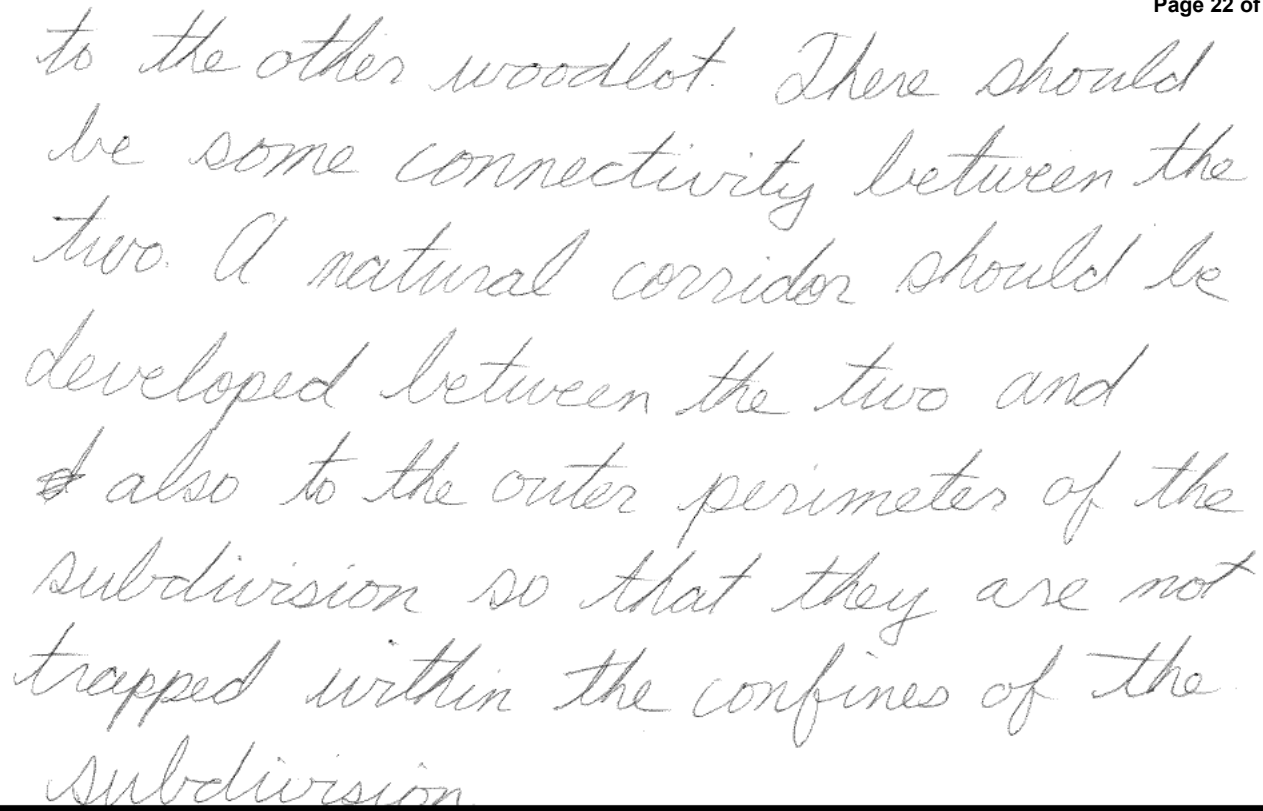 Page 22 of
to the other woodlot. There should
be some connectivity between the
two. A natural corridor should be
developed between the two and
also to the outer perimeter of the
subdivision so that they are not
trapped within the confines of the
subdivision